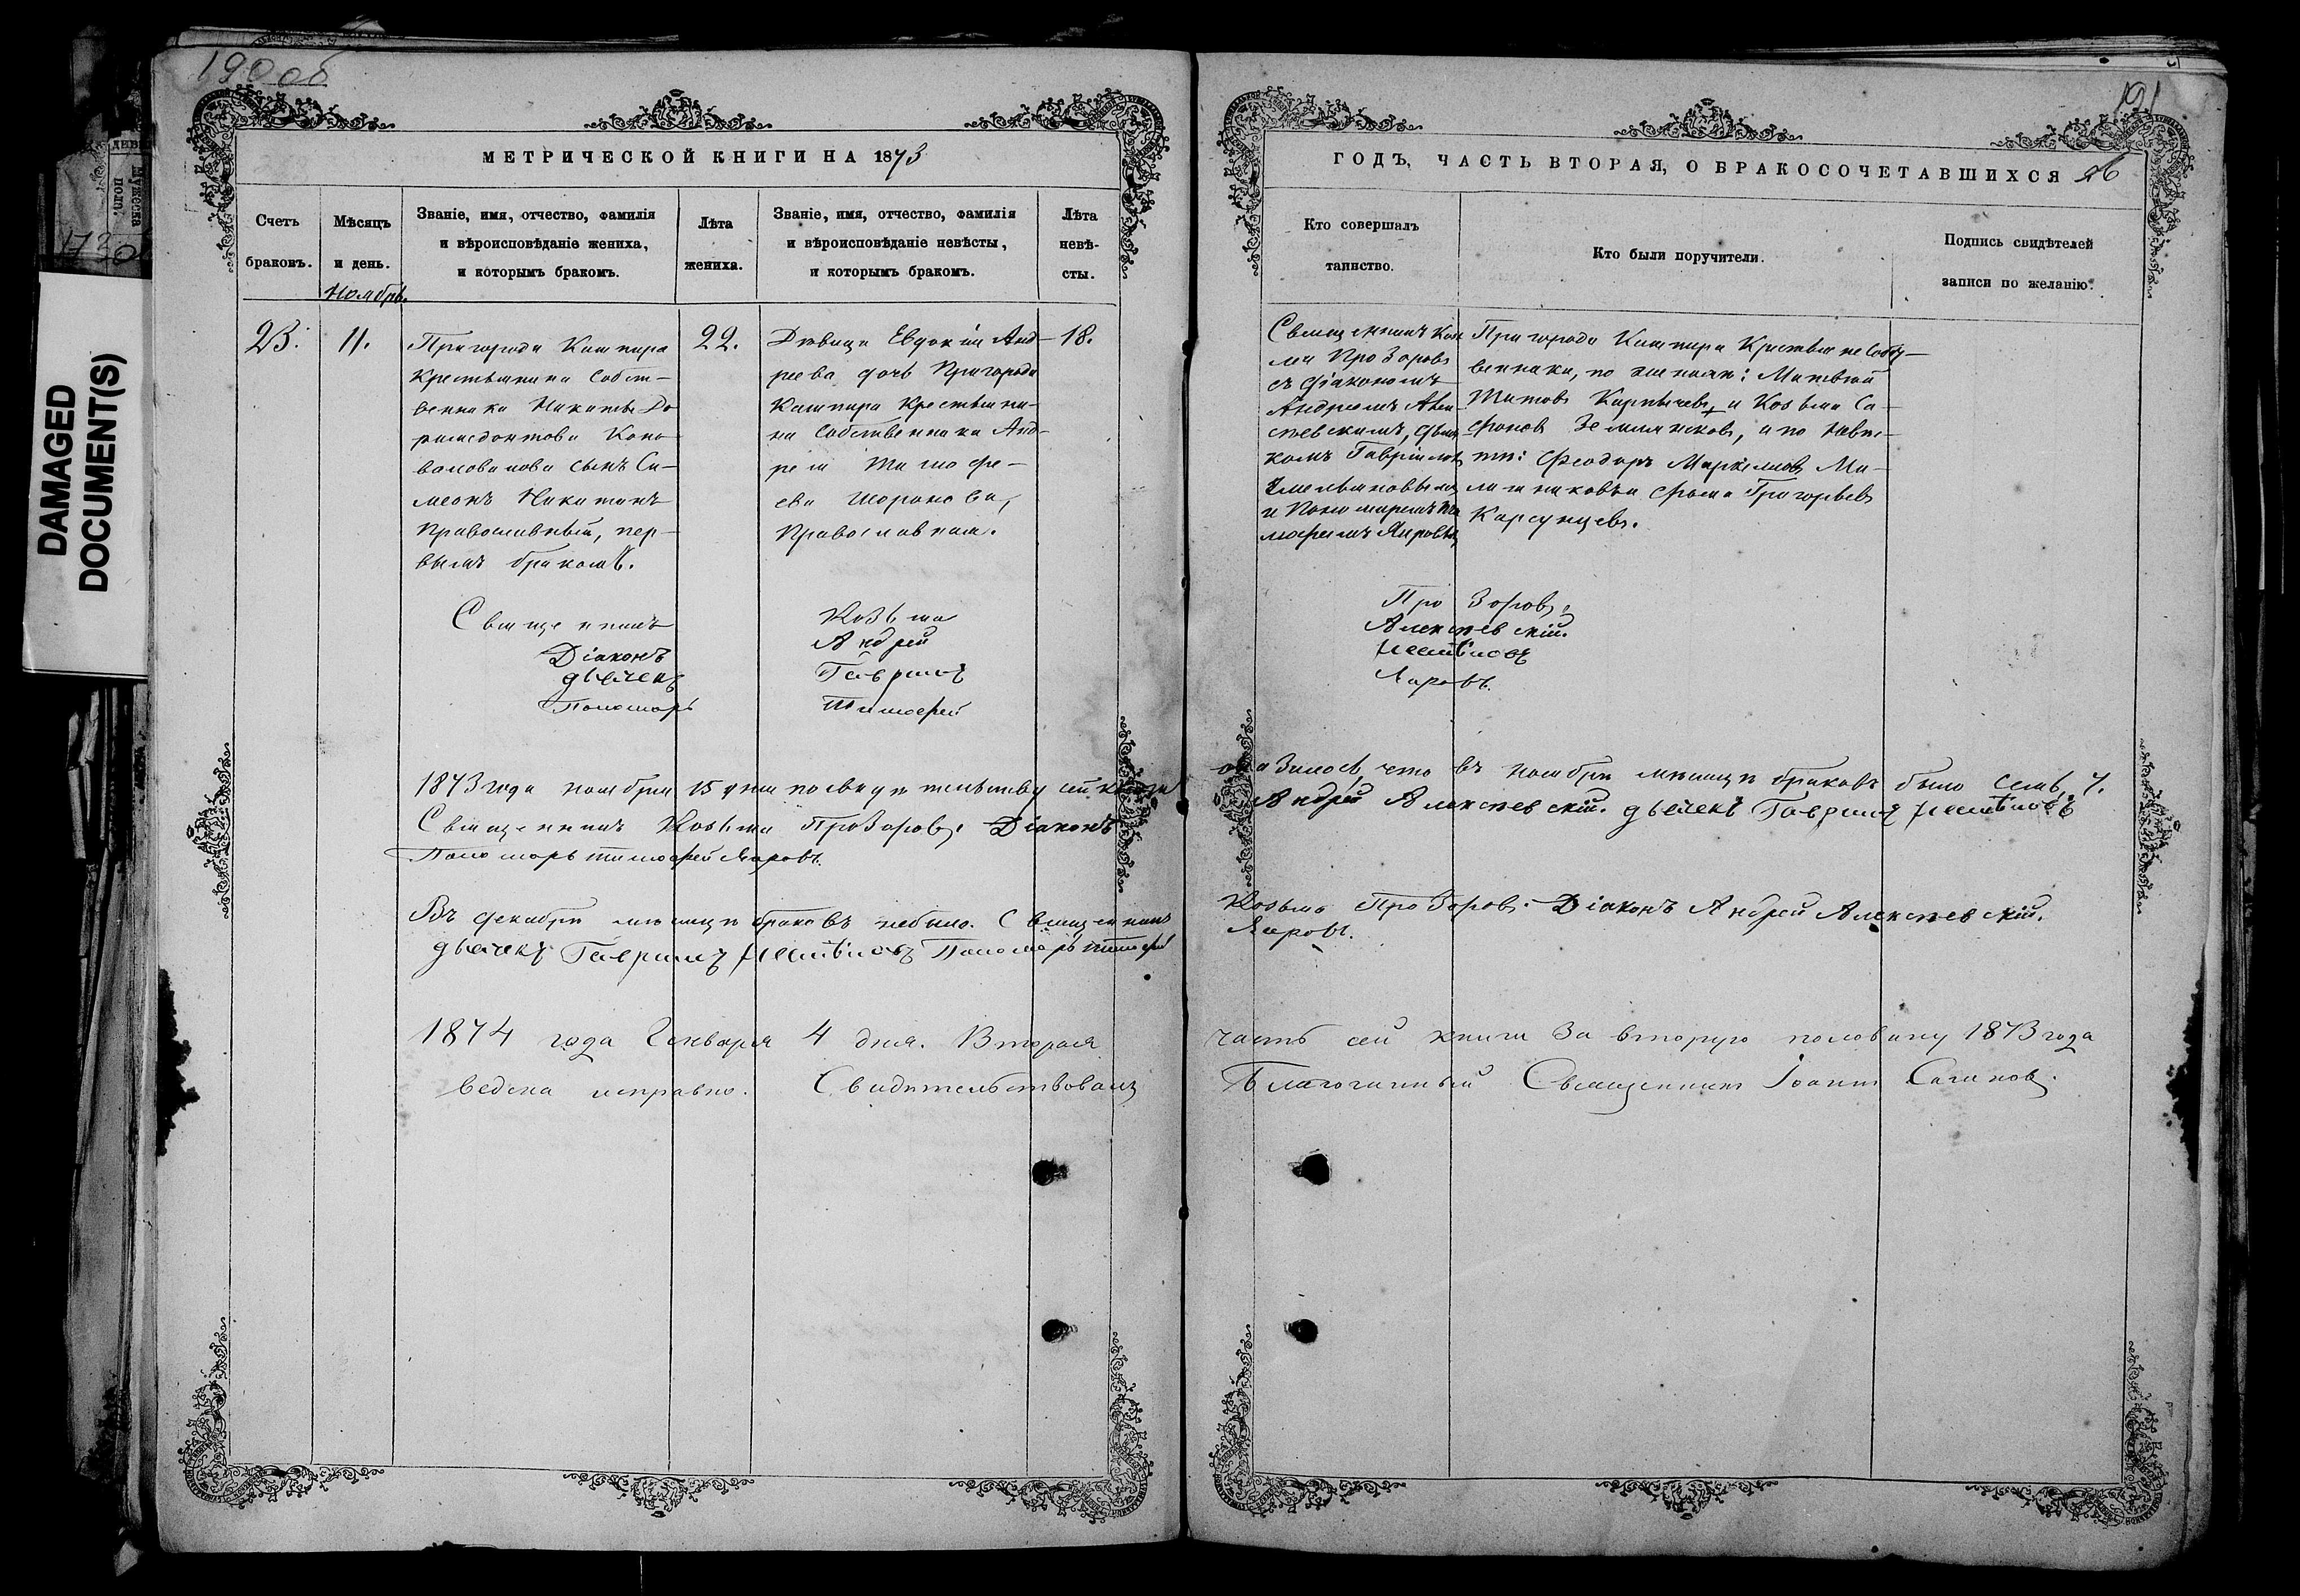 190 об
191
DAMAGED
DOCUMENT(S)
МЕТРИЧЕСКОЙ КНИГИ НА 1873
Счетъ
браковъ.
Мѣсяцъ
и день.
Ноябрь.
Званіе, имя, отчество, фамилія
и вѣроисповѣданіе жениха,
и которымъ бракомъ.
Лѣта
жениха.
Званіе, имя, отчество, фамилія
и вѣроисповѣданіе невѣсты,
и которымъ бракомъ.
Лѣта
невѣ-
сты.
23.
11.
Пригорода Кашпира
Крестьянина Собст-
венника Никиты До
римедонтова Коно-
валова сынъ Си-
меонъ Никитинъ
Православный, пер-
вымъ бракомъ.
22.
Дѣвица Евдокія Анд-
реева дочь Пригорода
Кашпира Крестьяни-
на Собственника Анд-
рея Тимофе-
ева Шоронова,
Православная.
18.
Священникъ
Діаконъ
дьячекъ
Пономарь
Козьма
Андрей
Гавріилъ
Тимофей
1873 года ноября 15 дня по свидѣтельству сей книги
Священникъ Козьма Прозоровъ. Діаконъ
Пономарь Тимофей Яировъ.
Въ декабрѣ мѣсяцѣ браковъ небыло. Священникъ
дьячекъ Гавріилъ Пономарь Тимофей
1874 года Генваря 4 дня. Вторая
ведена исправно. Свидѣтельствовалъ
ГОДЪ, ЧАСТЬ ВТОРАЯ, О БРАКОСОЧЕТАВШИХСЯ 26
Кто совершалъ
таинство.
Кто были поручители.
Подпись свидѣтелей
записи по желанію.
Священникъ Коз
ма Прозоровъ
съ діакономъ
Андреемъ Алек
сѣевскимъ, дьяч
комъ Гавріиломъ
и Пономаремъ Ти
мофеемъ Яировымъ
Пригорода Кашпира Крестьяне Собст-
венники, по женихѣ: Матвѣй
Титовъ Карпычевъ, и Козьма Са-
фоновъ Землянсковъ, а по невѣс-
тѣ: Феодоръ Маркеловъ Ма-
лашниковъ и Фома Григорьевъ
Карсунцевъ.
Прозоровъ.
Алексѣевскій.
Яировъ.
оказалось, что въ ноябрѣ мѣсяцѣ браковъ было семь, 7.
Андрей Алексѣевскій. дьячекъ Гавріилъ
Козьма Прозоровъ. Діаконъ Андрей Алексѣевскій.
Яировъ.
часть сей книги за вторую половину 1873 года
Благочинный Священникъ Іоаннъ Сагановъ.